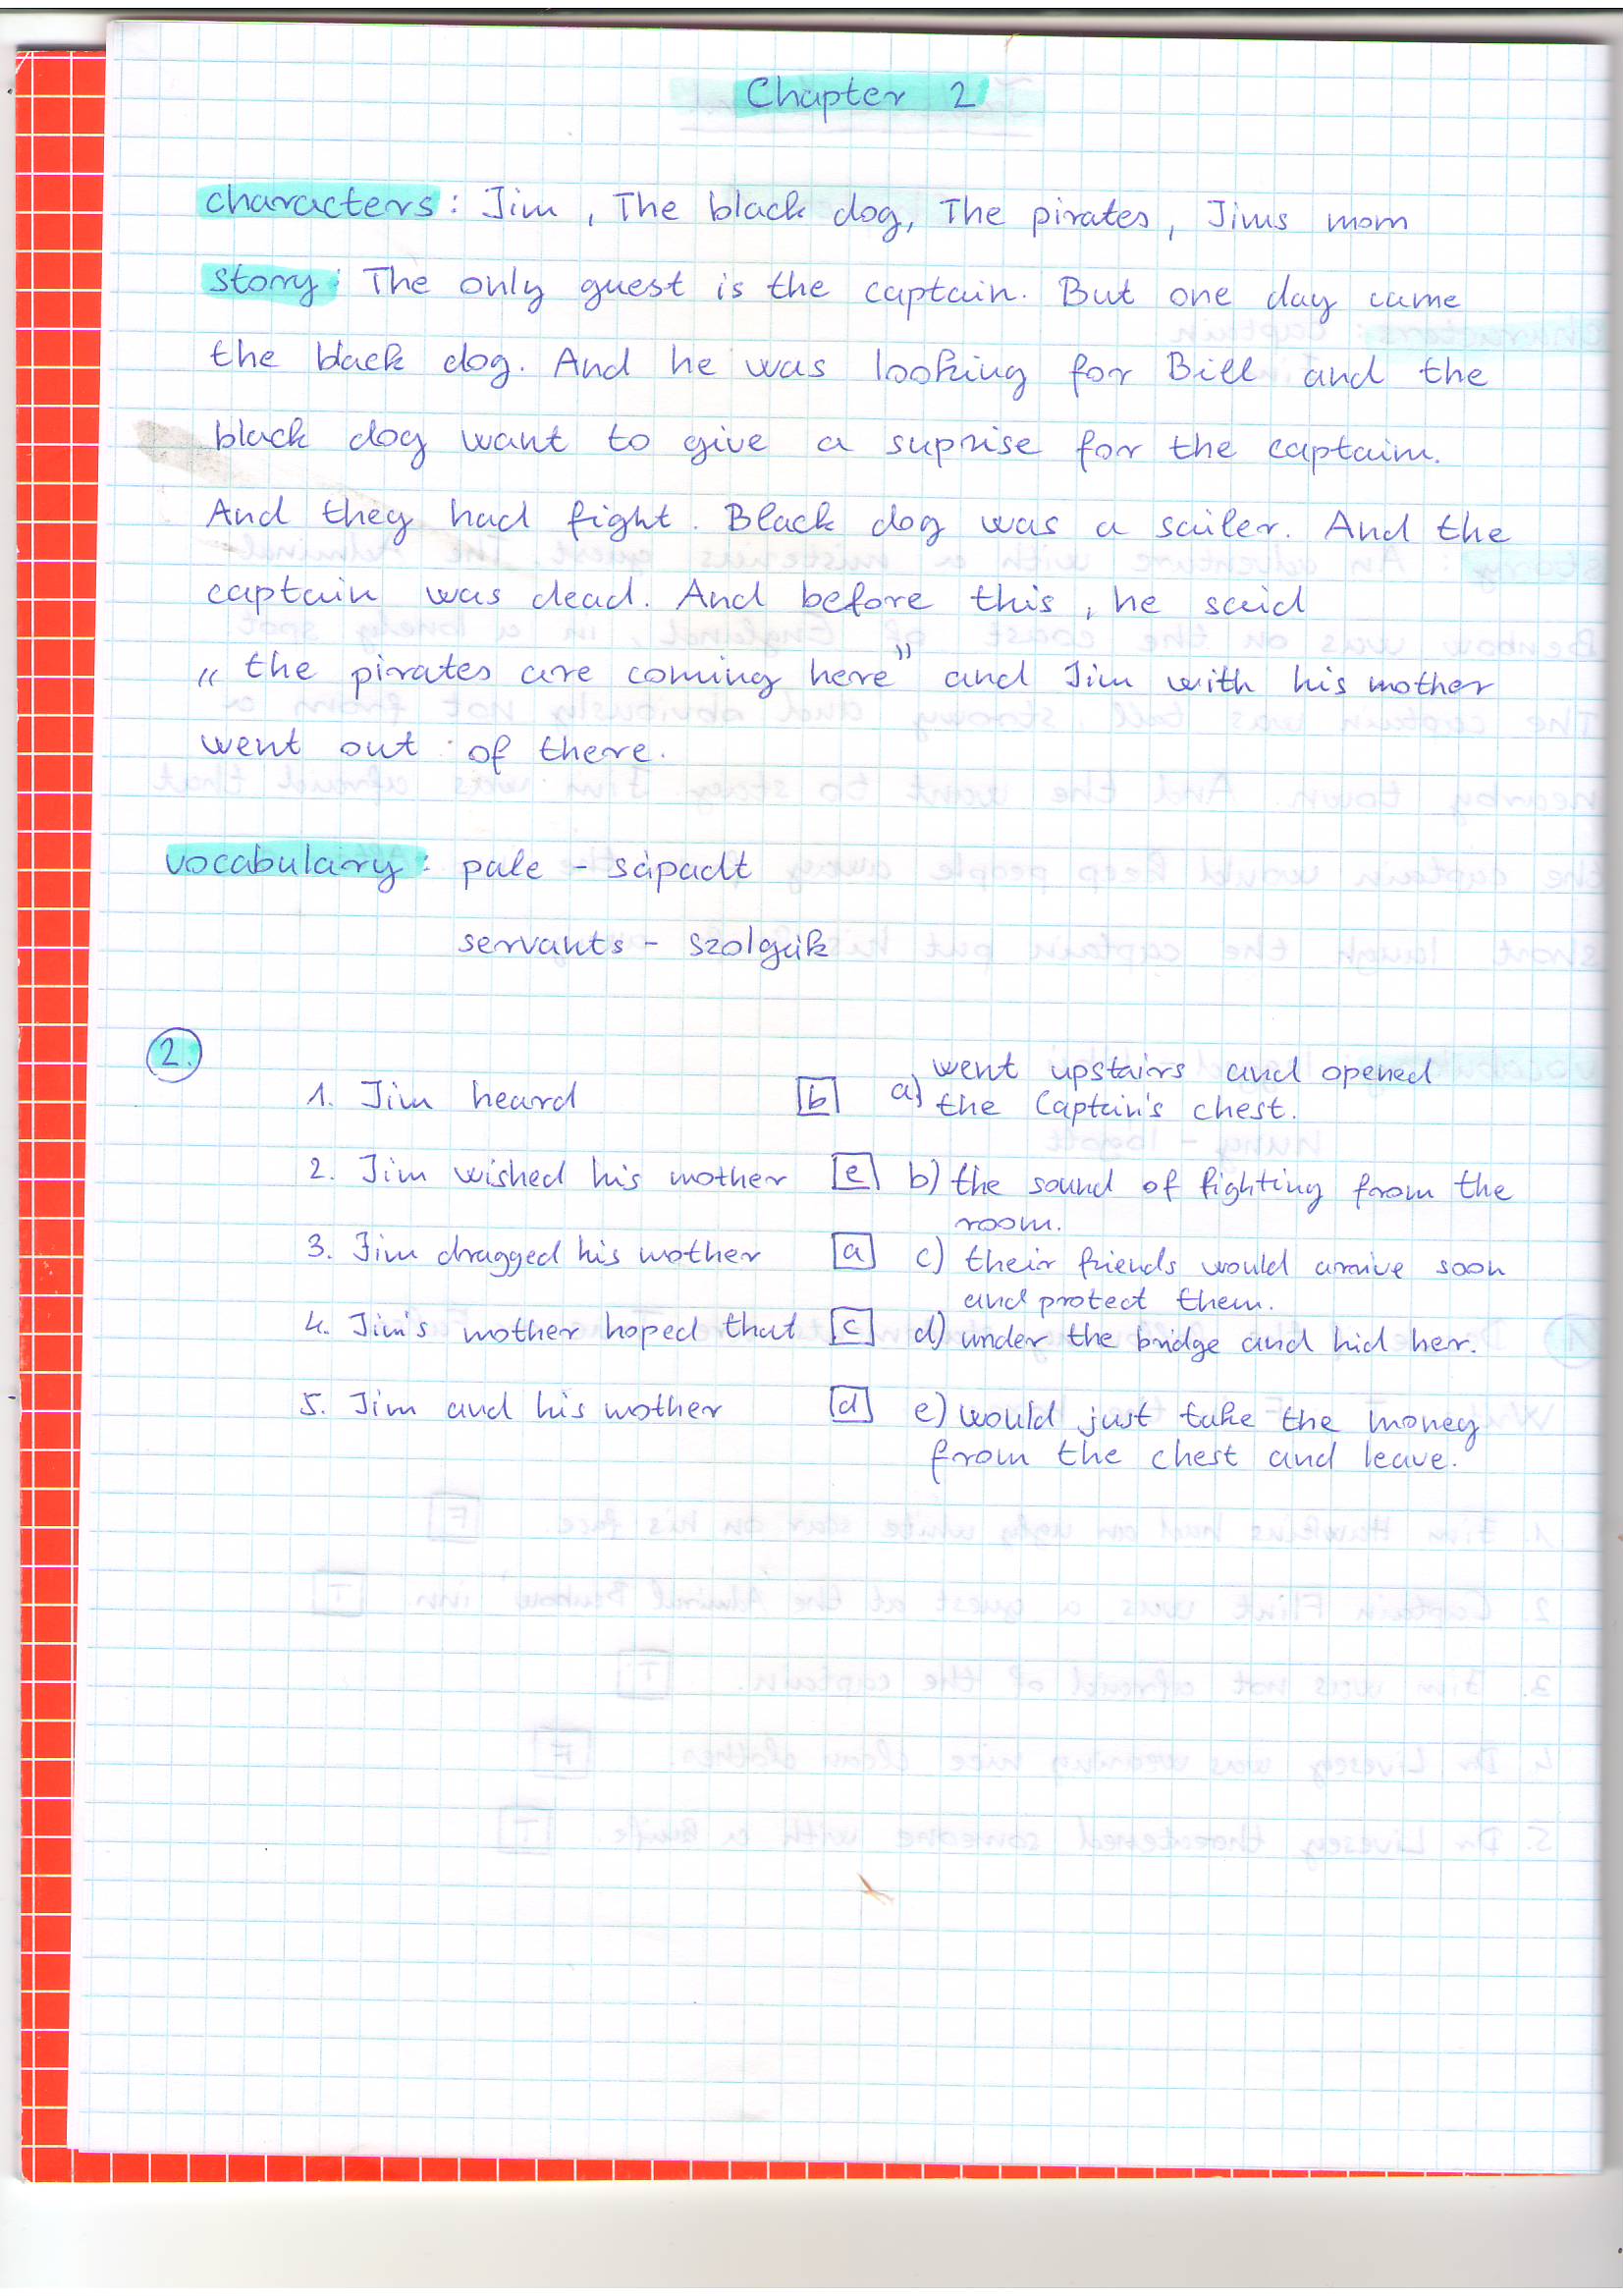 Chapter 2
characters: Jim, The black dog, The pirates, Jims mom
story: The only guest is the captain. But one day came
the black dog. And he was looking for Bill and the
black dog want to give a suprise for the captaim.
And they had fight. Black dog was a sailer. And the
captain was dead. And before this, he said
„the pirates are coming here” and Jim with his mother
went out of there.
vocabulary: pale - sápadt
servants - szolgák
2.
1. Jim heard b a) went upstairs and opened
the Captain's chest.
2. Jim wished his mother e b) the sound of fighting from the
room.
3. Jim dragged his mother a c) their friends would arrive soon
and protect them.
4. Jim's mother hoped that c d) under the bridge and hid her.
5. Jim and his mother d e) would just take the money
from the chest and leave.